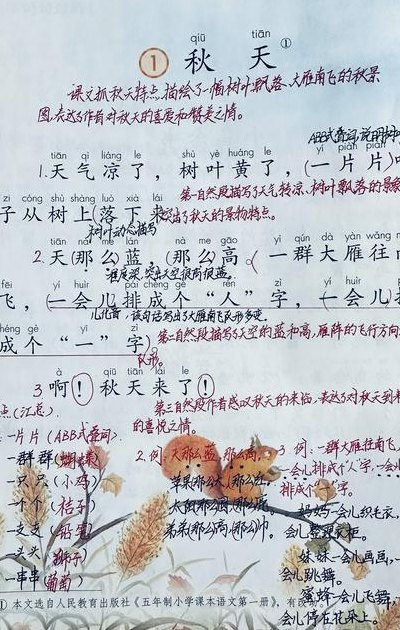 qiū tiān
1 秋 天 ①
课文抓秋天特点,描绘了一幅树叶飘落、大雁南飞的秋景
图,表达了作者对秋天的喜爱和赞美之情。
ABB式叠词,说明
tiān qì liáng le shù yè huáng le yí piàn piàn
1.天气凉了,树叶黄了,(一片片)
第一自然段描写了天气转凉、树叶飘落的景象
zi cóng shù shàng luò xià lái
子从树上(落下来
突出了秋天的景物特点。
树叶动态描写
tiān nà me lán nà me gāo yì qún dà yàn wǎng
2.天(那么)蓝,(那么)高。(一群大雁往
程度深,突出天空很高很蓝。
fēi yí huìr pái chéng gè rén zì yí huìr
飞,(一会儿排成个“人”字,一会儿
儿化音,该句话写出了大雁南飞队形多变。
chéng gè yī zì
成个“一”字)
第二自然段描写了天空的蓝和高,雁阵的飞行方向
队形。
à qiū tiān lái le
3 啊!秋天来了!
第三自然段作者感叹秋天的来临,表达了对秋天到
的喜悦之情。
点(汇总)
一片片(ABB式叠词).
一群群(蝴蝶)
一只只(小鸡)
一个个(桔子)
一支支(铅笔)
一头头(狮子)
一串串(葡萄)
2.例:天那么蓝,那么高。
苹果(那么)大,(那么)红。
弟弟(那么)高(那么)帅。
3 例:一群大雁往南飞,
一会儿排成个“人”字,一会儿
排成个“一”字。
妈妈一会儿织毛衣,
会儿整理衣柜。
妹妹一会儿画画,一
会儿跳舞。
蜜蜂一会儿飞舞,
会儿停在花朵上。
① 本文选自人民教育出版社《五年制小学课本语文第一册》,有改动。